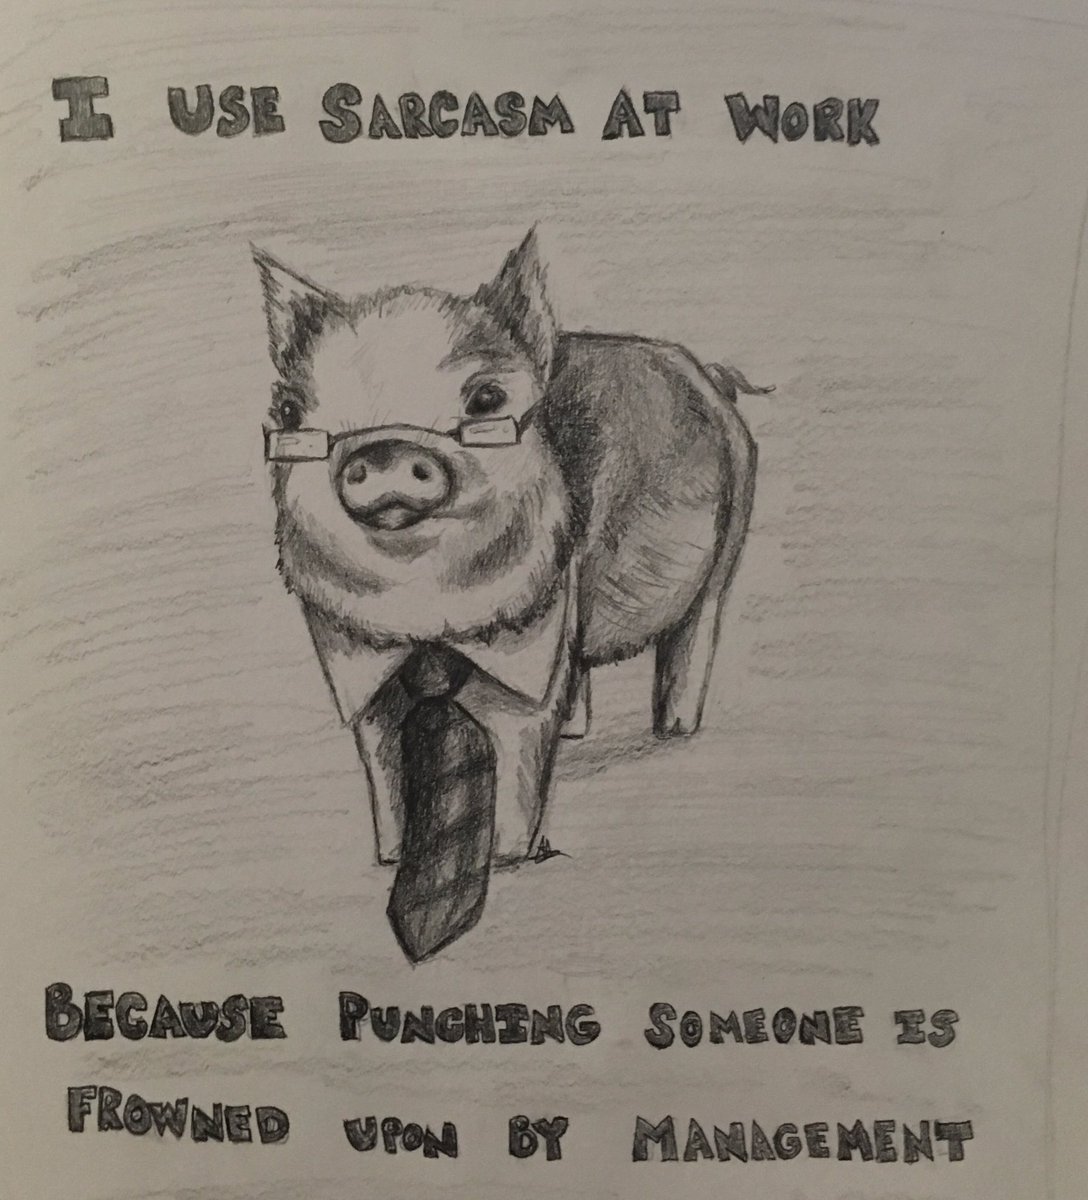 I USE SARCASM AT WORK
BECAUSE PUNCHING SOMEONE IS
FROWNED UPON BY MANAGEMENT